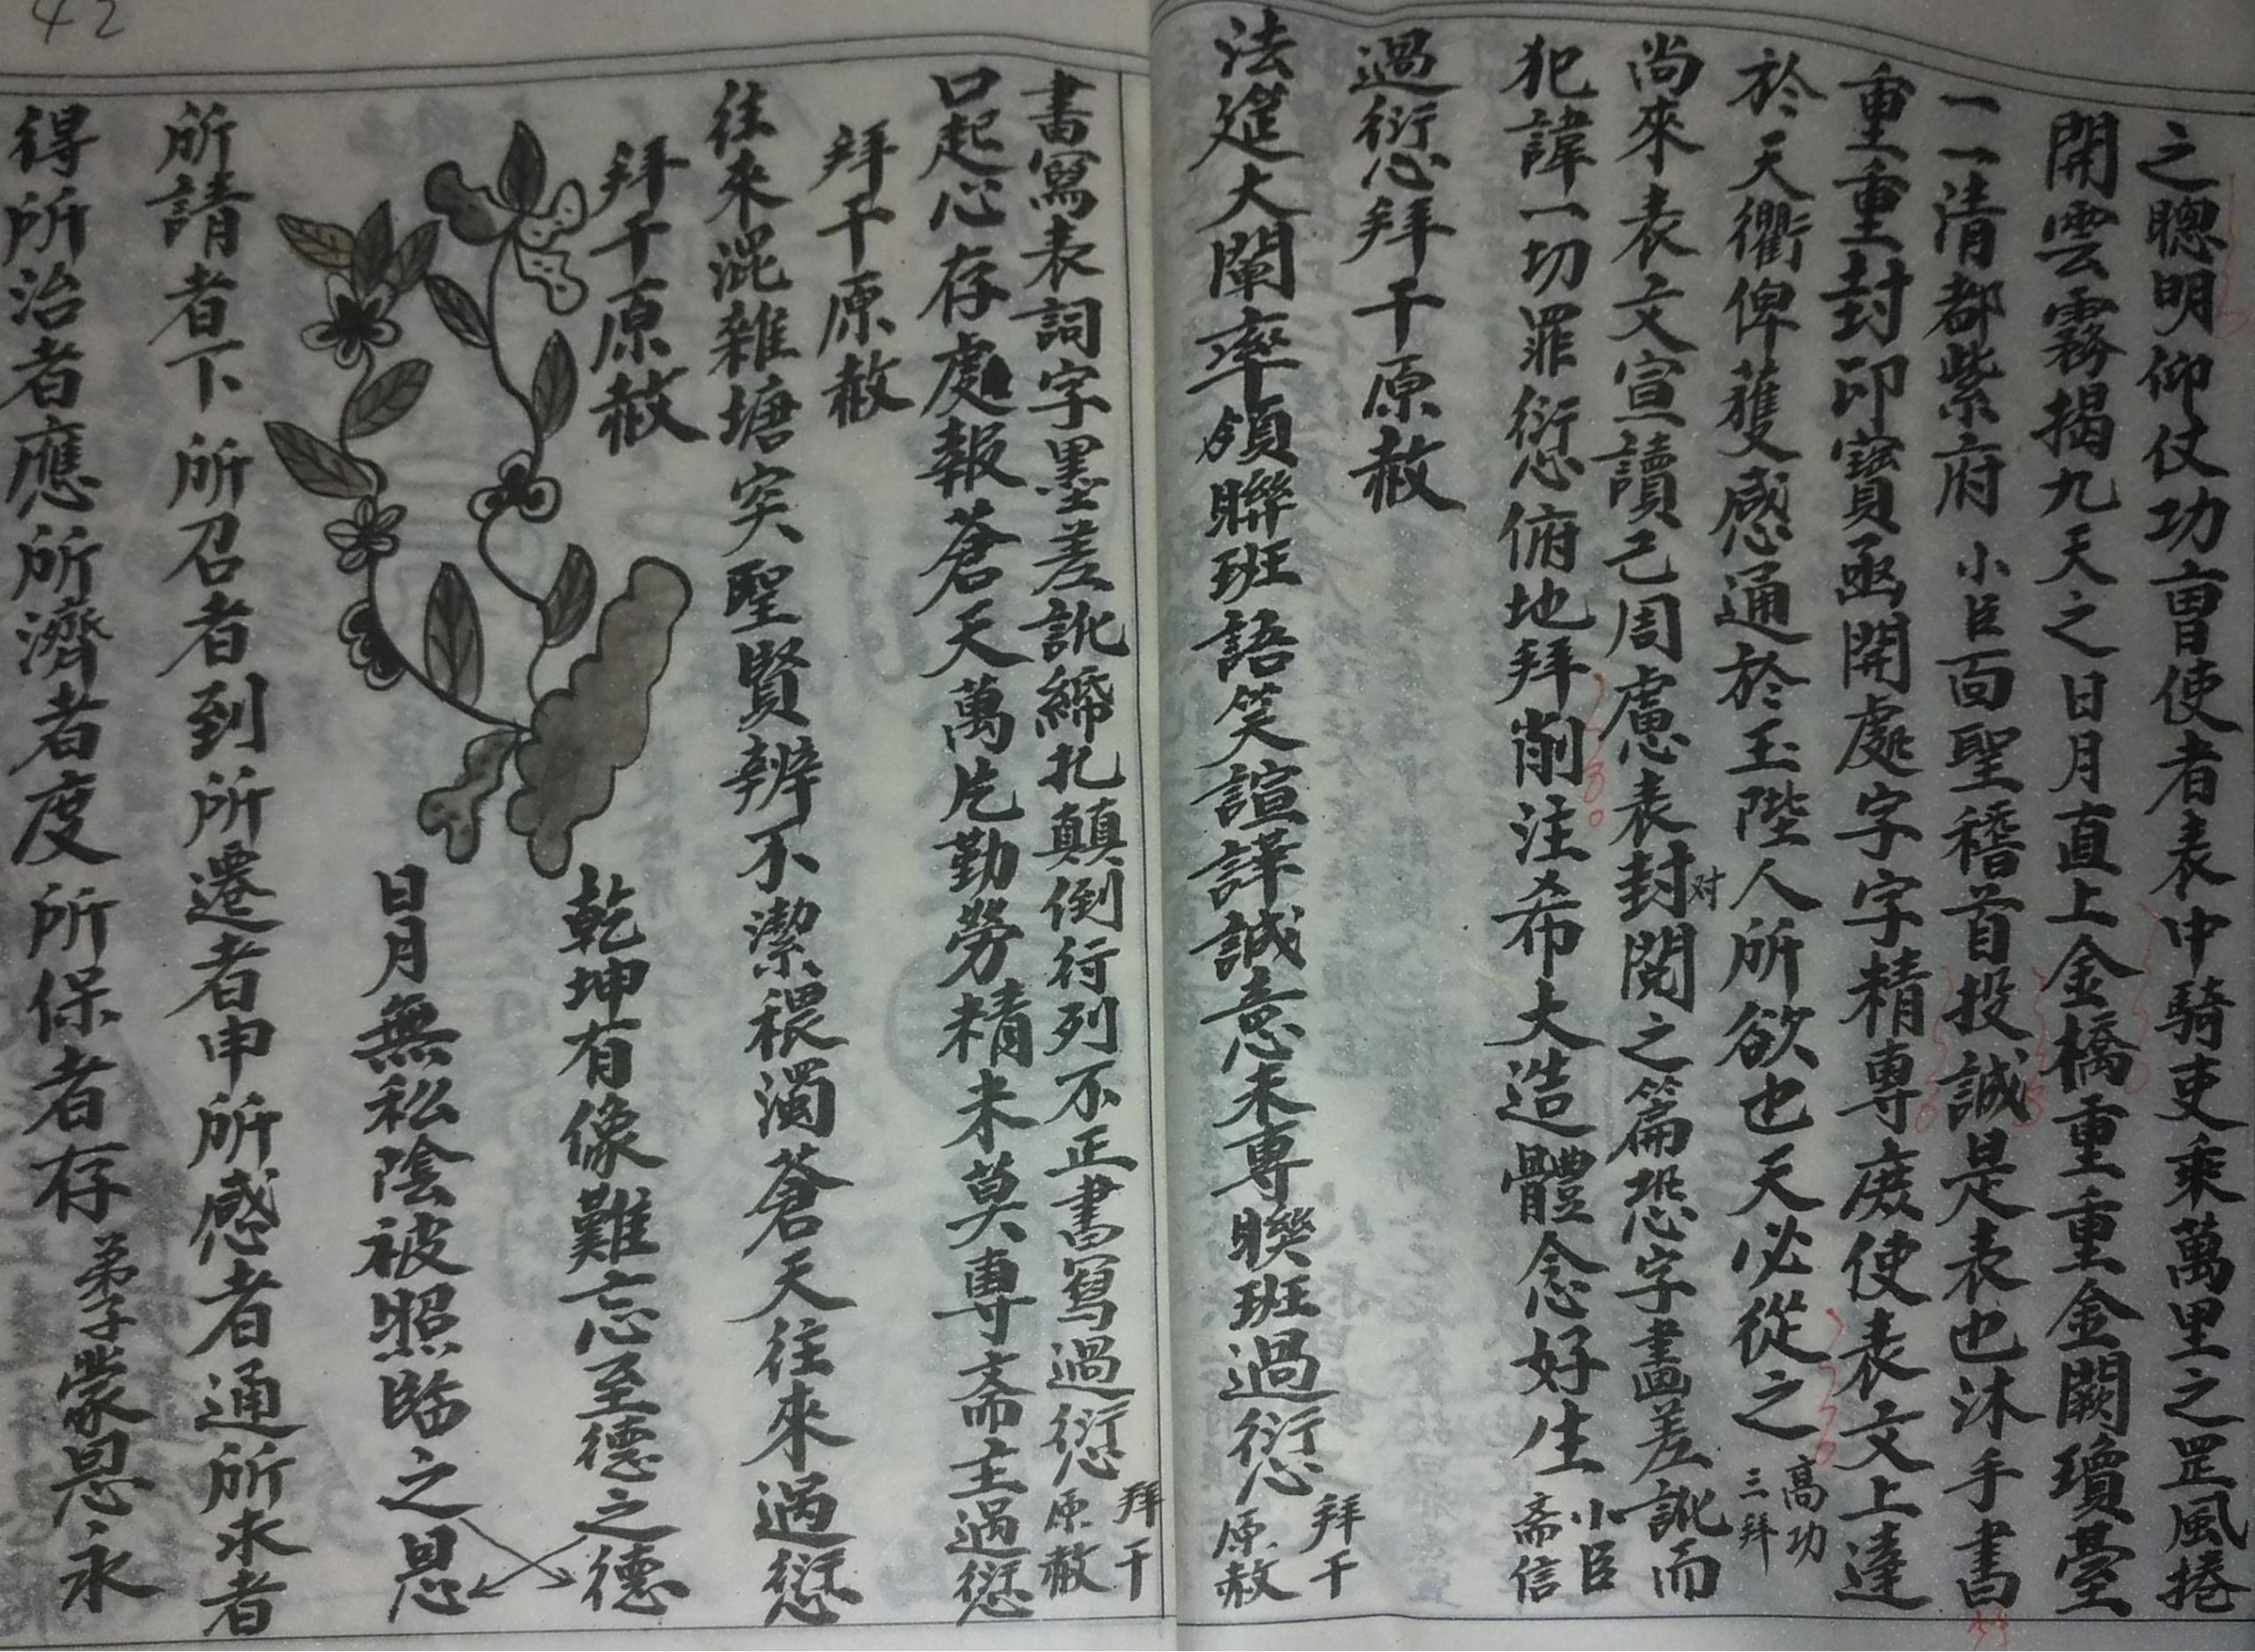 之聰明仰仗功曹使者表中騎吏乘萬里之罡風捲
開雲霧揭九天之日月直上金橋重重金闕瓊臺
一一清都紫府小臣面聖稽首投誠是表也沐手書
重重封印寶函開處字字精專度使表文上達
於天衢俾獲感通於玉陛人所欲也天必從之高功三拜
尚來表文宣讀己周慮表封对閱之篇恐字畫差訛而
犯諱一切罪愆俯地拜削注希大造體念好生小臣斋信
過愆拜干原赦
法筵大闡率領聯班語笑諠譁誠意未專聯班過愆拜干原赦
書寫表詞字墨差訛締扎顛倒行列不正書寫過愆拜干原赦
口起心存處報蒼天萬片勤勞精未莫專斋主過愆
拜干原赦
往來混雜塘突聖賢辨不潔穢濁蒼天往來過愆
拜干原赦
乾坤有像難忘至德之德
日月無私陰被照臨之恩
所請者下所召者到所遷者申所感者通所求者
得所治者應所濟者度所保者存弟子蒙恩永
42